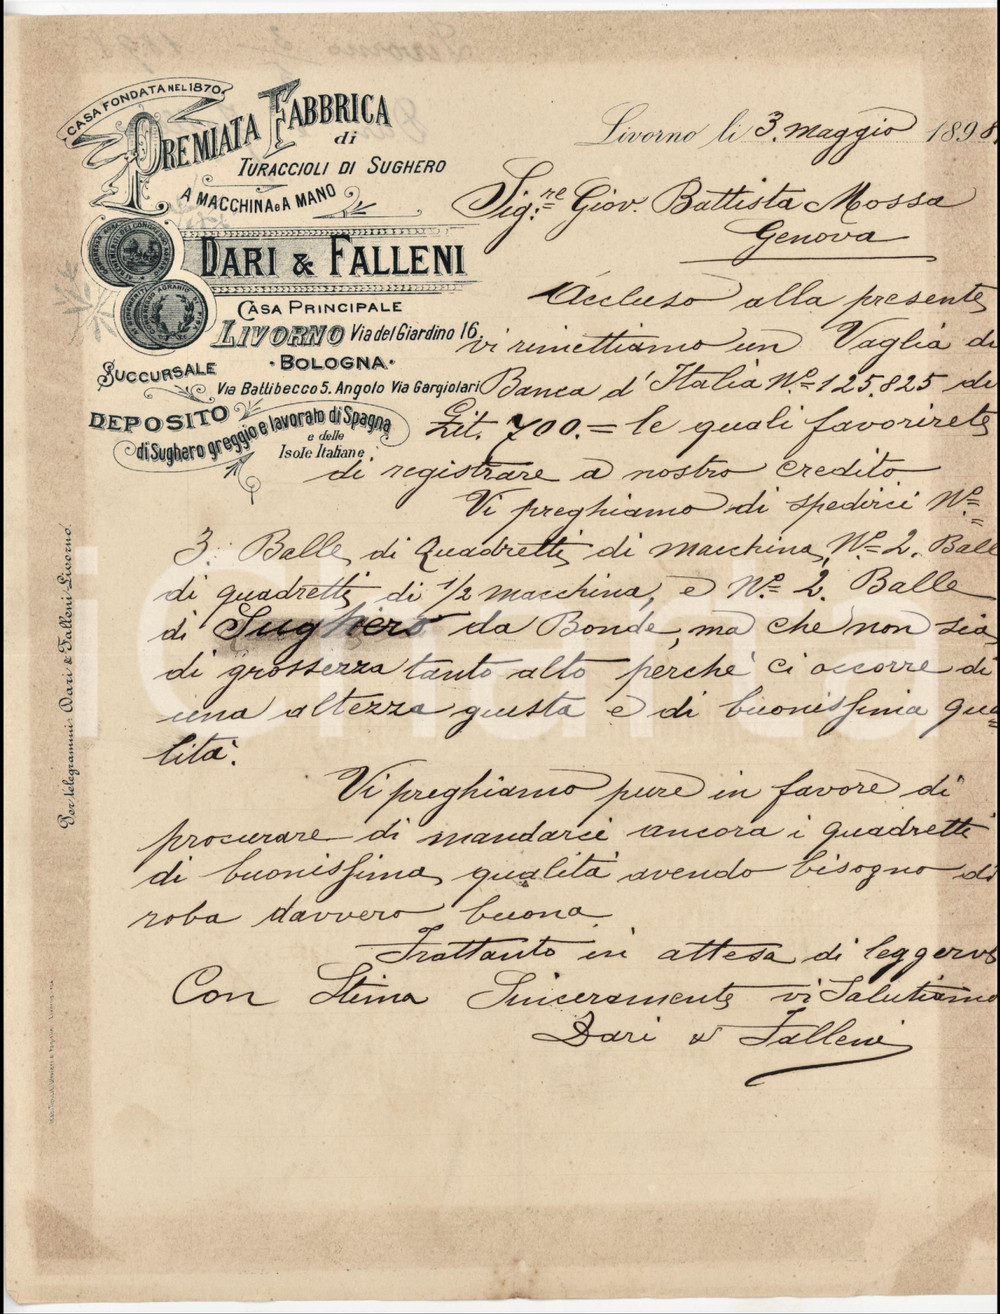 CASA FONDATA NEL 1870
PREMIATA FABBRICA
di
TURACCIOLI DI SUGHERO
A MACCHINA e A MANO
DARI & FALLENI
CASA PRINCIPALE
LIVORNO Via del Giardino 16,
SUCCURSALE · BOLOGNA ·
Via Battibecco 5. Angolo Via Gargiolari
DEPOSITO
di Sughero greggio e lavorato di Spagna
e delle
Isole Italiane
Per telegrammi: Dari & Falleni Livorno.
Livorno li 3. maggio 1898
Sig.re Giov. Battista Mossa
Genova
Accluso alla presente
vi rimettiamo un Vaglia di
Banca d'Italia No= 125.825 di
Lit. 700.= le quali favorirete
di registrare a nostro credito
Vi preghiamo di spedirci No=
3. Balle di Quadretti di macchina, No= 2. Balle
di quadretti di 1/2 macchina, e No= 2. Balle
di Sughero da Bonde, ma che non sia
di grossezza tanto alto perché ci occorre di
una altezza giusta e di buonissima qua=
lità.
Vi preghiamo pure in favore di
procurare di mandarci ancora i quadretti
di buonissima qualità avendo bisogno di
roba davvero buona
Frattanto in attesa di leggervi
Con Stima Sinceramente vi Salutiamo
Dari & Falleni
iCharta